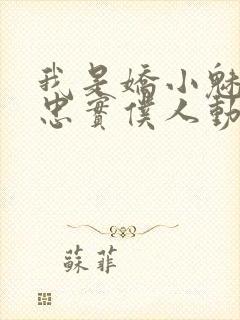 我是嬌小魅
忠實僕人動
蘇菲